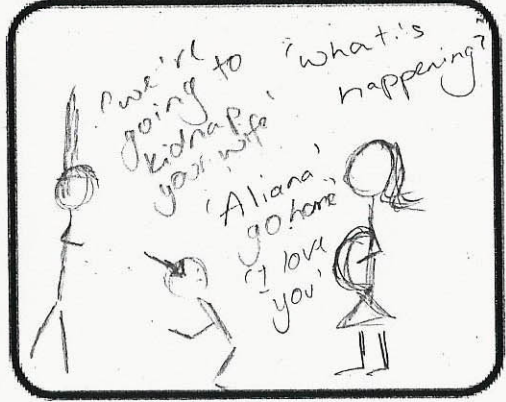 'we're
going to
kidnap
your wife'
'what's
happening?
'Aliana,
go home'
'I love
you'